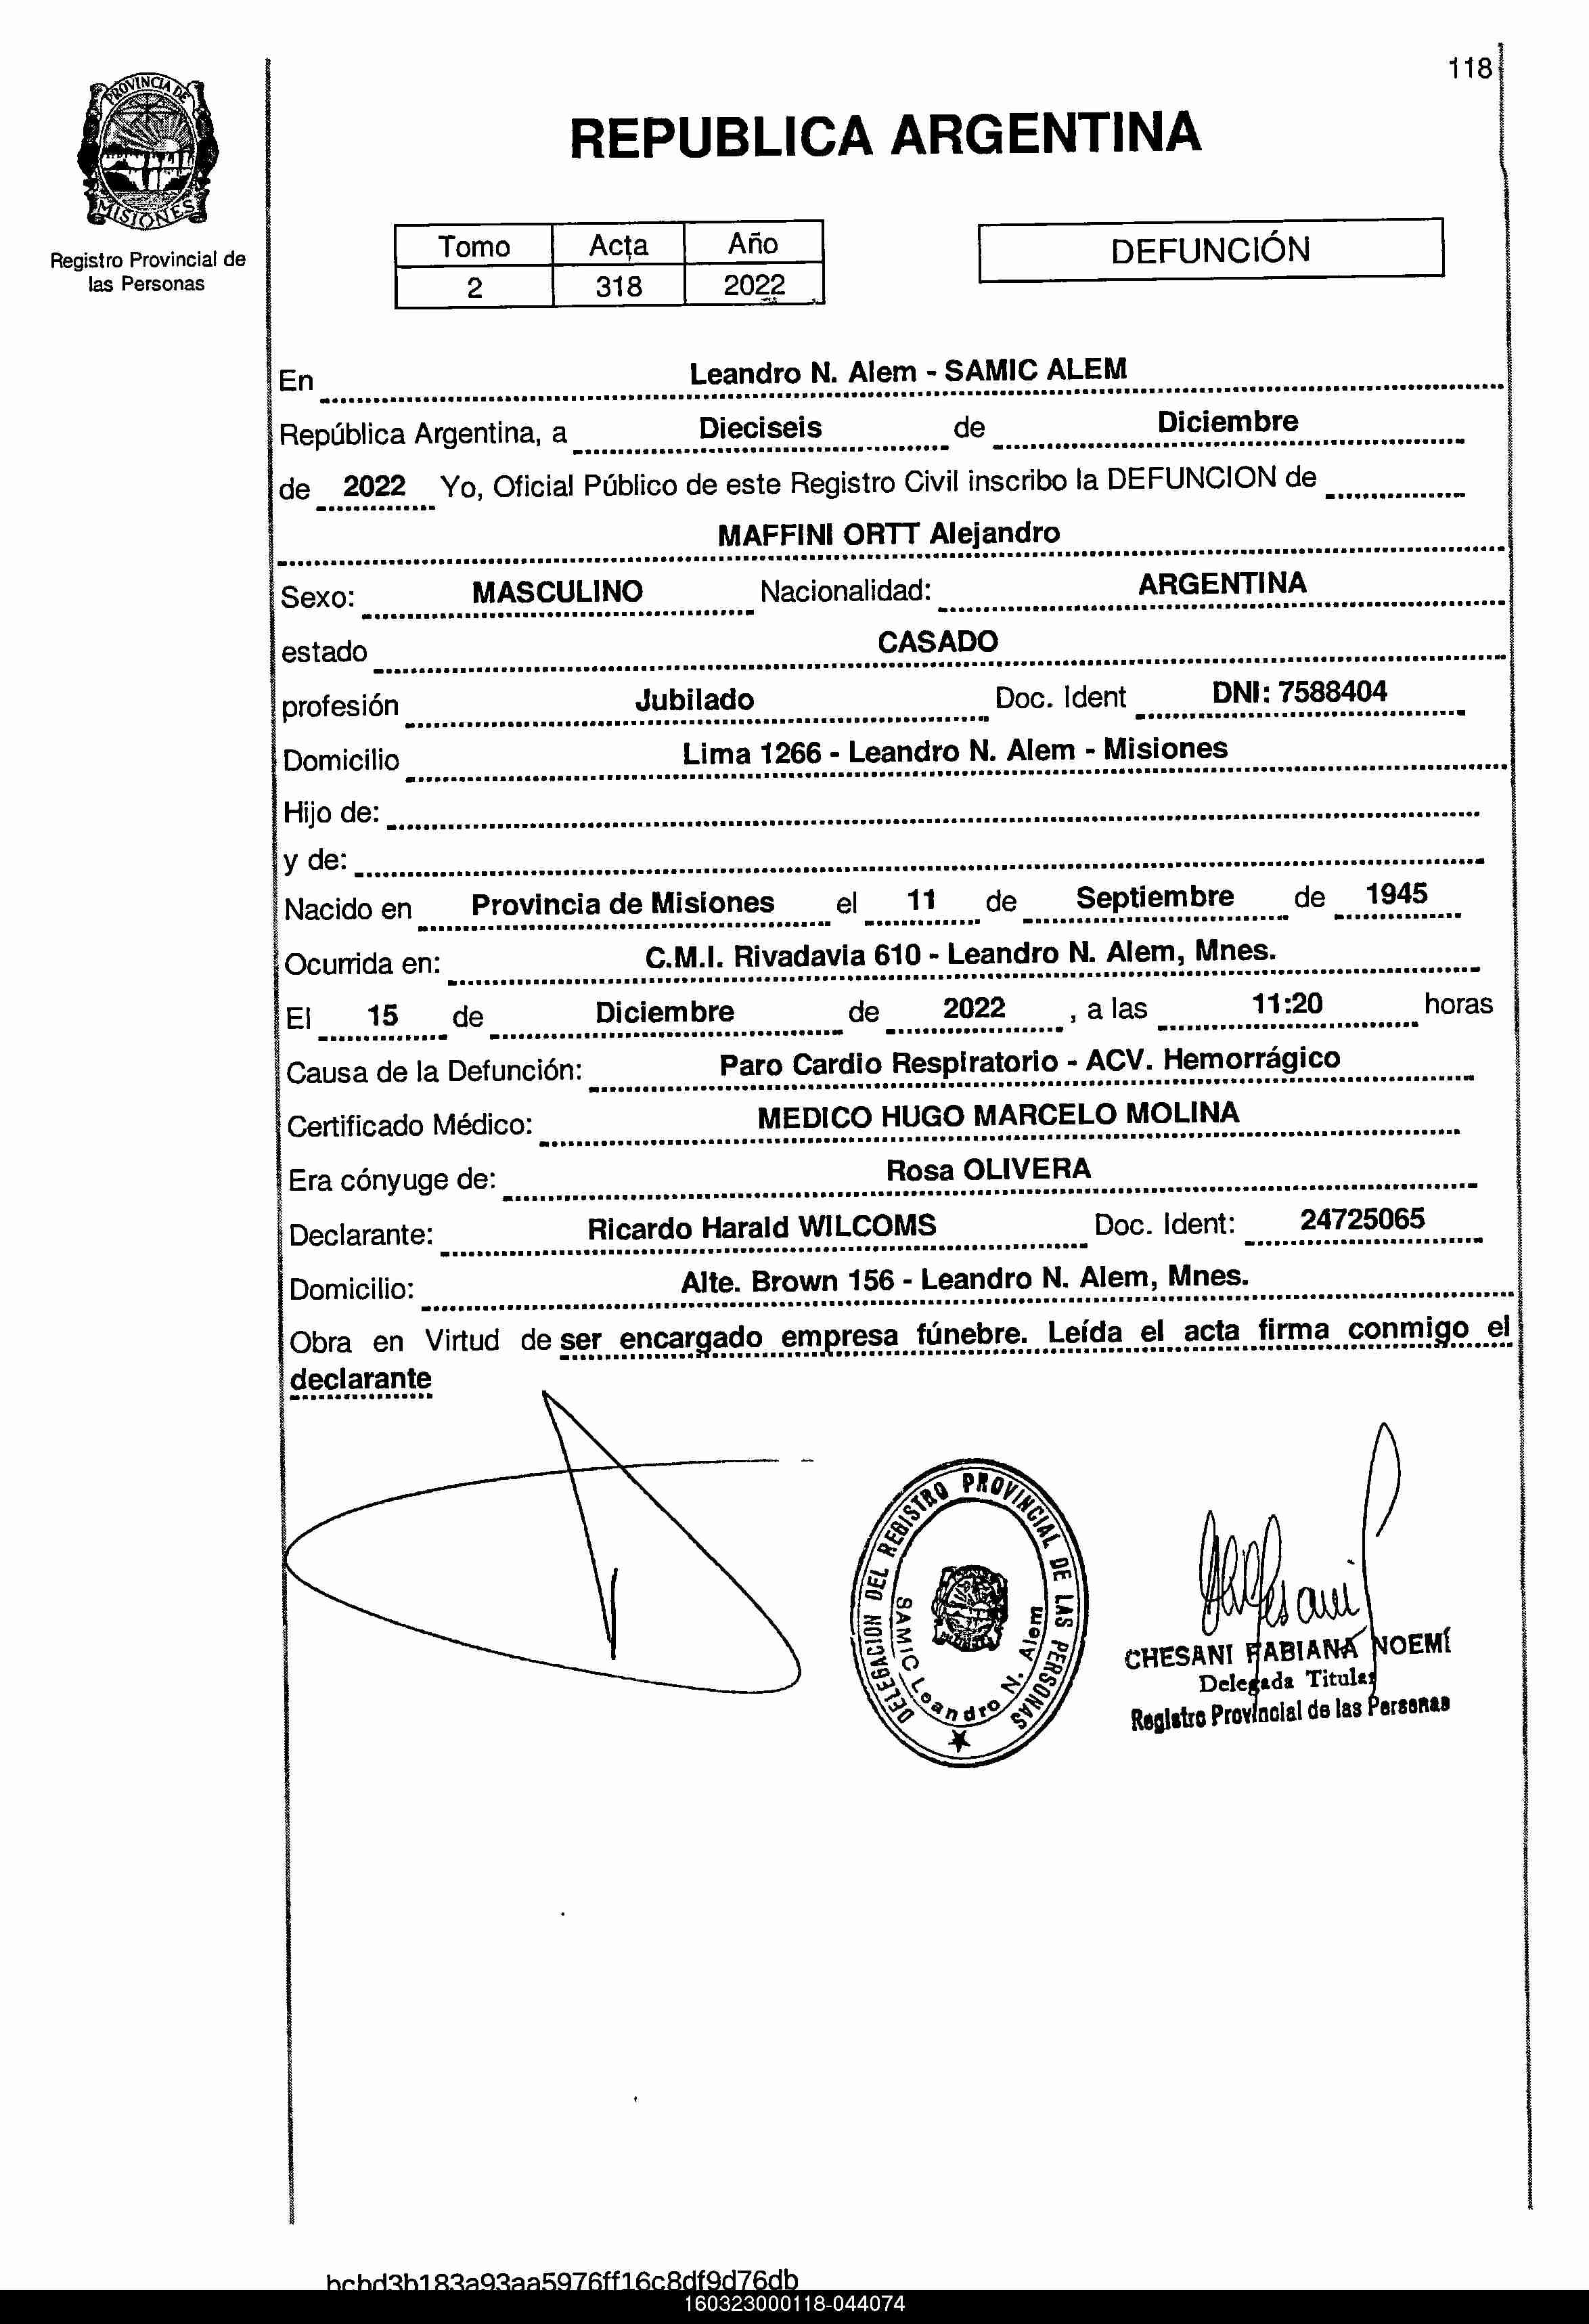 118
PROVINCIA DE
MISIONES
Registro Provincial de
las Personas
REPUBLICA ARGENTINA
Tomo Acta Año
2 318 2022
DEFUNCIÓN
En Leandro N. Alem - SAMIC ALEM
República Argentina, a Dieciseis de Diciembre
de 2022 Yo, Oficial Público de este Registro Civil inscribo la DEFUNCION de
MAFFINI ORTT Alejandro
Sexo: MASCULINO Nacionalidad: ARGENTINA
estado CASADO
profesión Jubilado Doc. Ident DNI: 7588404
Domicilio Lima 1266 - Leandro N. Alem - Misiones
Hijo de:
y de:
Nacido en Provincia de Misiones el 11 de Septiembre de 1945
Ocurrida en: C.M.I. Rivadavia 610 - Leandro N. Alem, Mnes.
El 15 de Diciembre de 2022 , a las 11:20 horas
Causa de la Defunción: Paro Cardio Respiratorio - ACV. Hemorrágico
Certificado Médico: MEDICO HUGO MARCELO MOLINA
Era cónyuge de: Rosa OLIVERA
Declarante: Ricardo Harald WILCOMS Doc. Ident: 24725065
Domicilio: Alte. Brown 156 - Leandro N. Alem, Mnes.
Obra en Virtud de ser encargado empresa fúnebre. Leída el acta firma conmigo el
declarante
DELEGACION DEL REGISTRO PROVINCIAL DE LAS PERSONAS
SAMIC Leandro N. Alem
CHESANI FABIANA NOEMÍ
Delegada Titular
Registro Provincial de las Personas
bcbd3b183a93aa5976ff16c8df9d76db
160323000118-044074